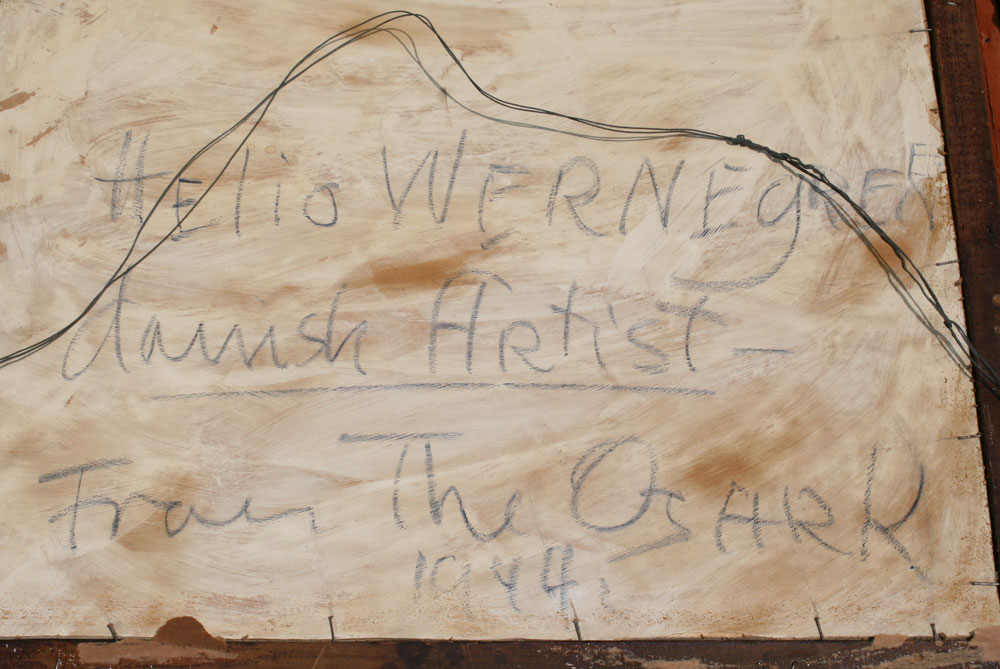 HElio WERNEgREN
danish ARtist —
From The OsARK